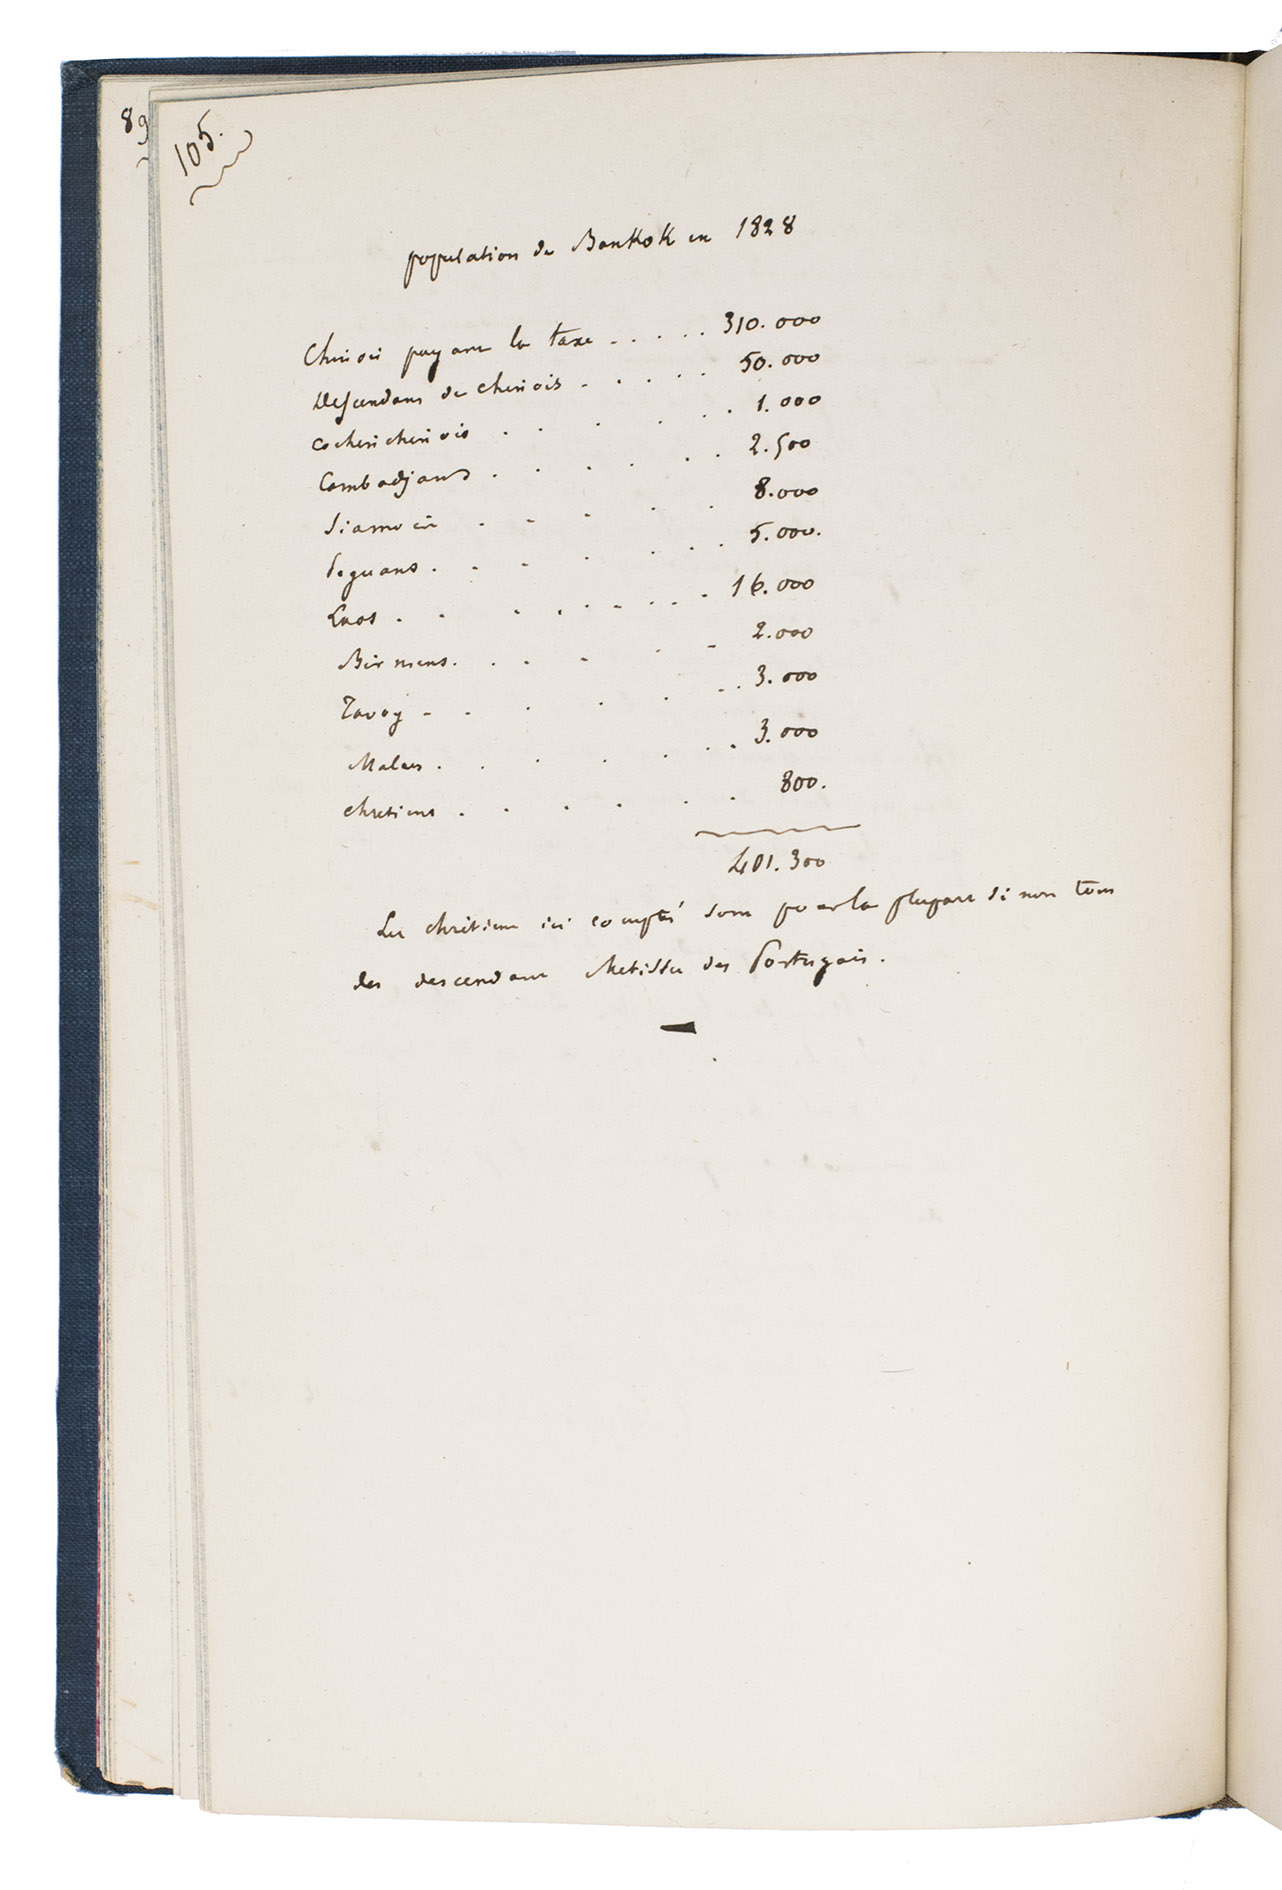 89
105.
population de Bankok en 1828
Chinois payant la taxe . . . . . 310.000
Descendans de chinois . . . . . 50.000
cochinchinois . . . . . . 1.000
Cambodjans . . . . . . 2.500
Siamois . . . . . 8.000
Peguans . . . . . . . 5.000.
Laos . . . . . . . . . 16.000
Birmens . . . . . . 2.000
Tavoy . . . . . . . 3.000
Malais . . . . . . . 3.000
chretiens . . . . . . 800.
401.300
Les chrétiens ici comptés sont pour la plupart si non tous
des descendans Metisses des Portugais.